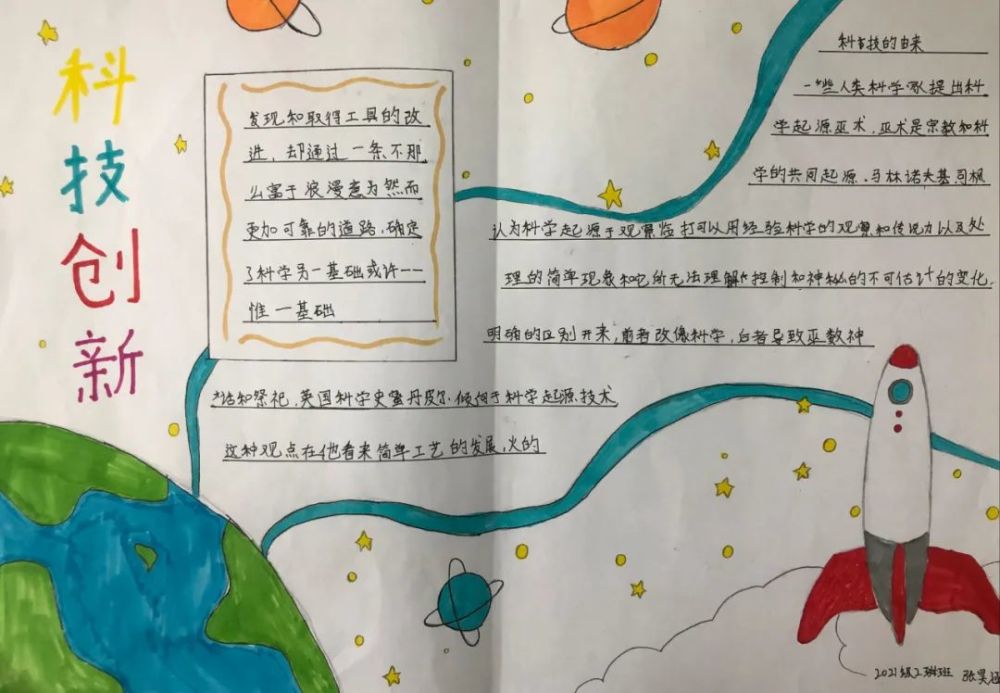 科技创新
科技的由来
一些人类科学家提出科
学起源巫术,巫术是宗教和科
学的共同起源.马林诺夫基司根
认为科学起源于观察 可以用经验科学的观察和传说力以及处
理的简单现象和它所无法理解 控制和神秘的不可估计的变化.
明确的区别开来,前者改像科学,白者导致巫教神
话和祭祀,英国科学史 丹皮尔.倾向于科学起源.技术
这种观点在他看来简单工艺的发展,火的
发现和取得工具的改
进,却通过一条不那
么富于浪漫意为然而
更加可靠的道路,确定
了科学另一基础或许一
惟一基础
2021级 班 张昊